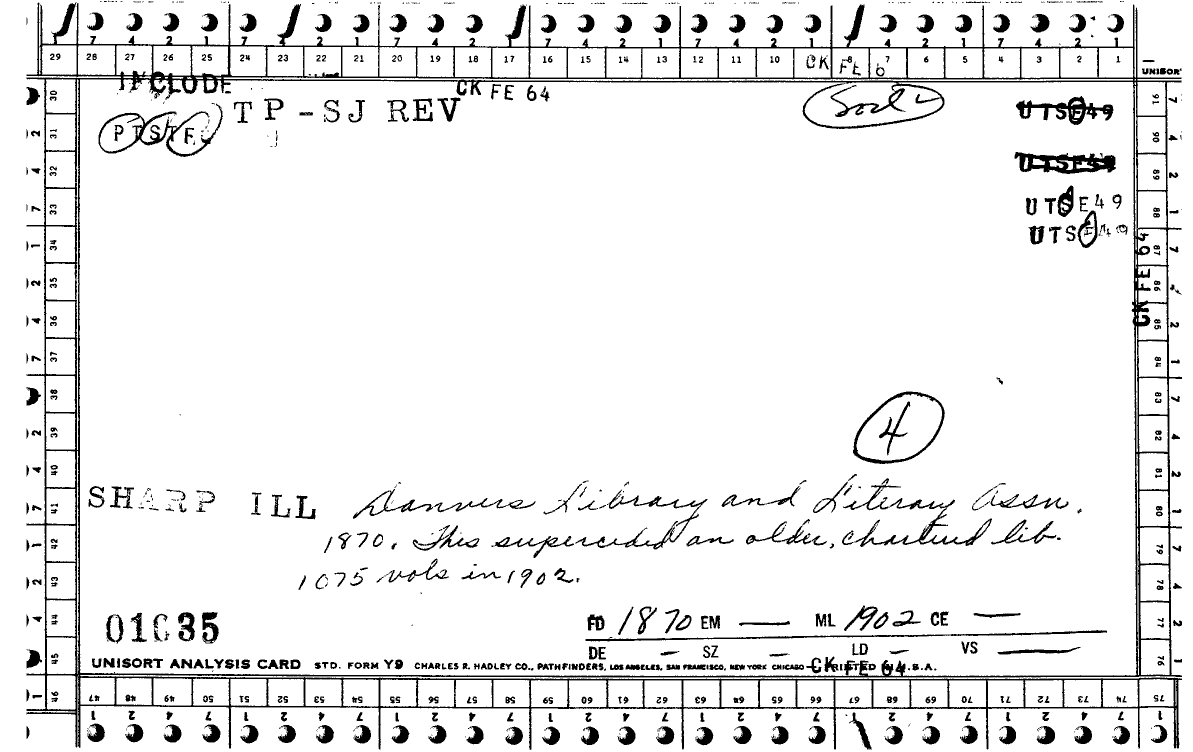 7 4 2 1 7 4 2 1 7 4 2 1 7 4 2 1 7 4 2 1 7 4 2 1 7 4 2 1
29 28 27 26 25 24 23 22 21 20 19 18 17 16 15 14 13 12 11 10 7 6 5 4 3 2 1
CK FE 6
UNISORT
INCLODE
CK FE 64
TP-SJ REV
PTSTF
UTSE49
UTSE49
UTSE49
UTSE49
CK FE 64
30 31 32 33 34 35 36 37 38 39 40 41 42 43 44 45 46
91 90 89 88 87 86 85 84 83 82 81 80 79 78 77 76
4
SHARP ILL Danvers Library and Literary Assn.
1870. This superceded an older, chartered lib.
1075 vols in 1902.
01635
FD 1870 EM — ML 1902 CE —
DE — SZ — LD — VS —
UNISORT ANALYSIS CARD STD. FORM Y9 CHARLES R. HADLEY CO., PATHFINDERS, LOS ANGELES, SAN FRANCISCO, NEW YORK CHICAGO PRINTED IN U.S.A.
CK FE 64
47 48 49 50 51 52 53 54 55 56 57 58 59 60 61 62 63 64 65 66 67 68 69 70 71 72 73 74 75
1 2 4 7 1 2 4 7 1 2 4 7 1 2 4 7 1 2 4 7 1 2 4 7 1 2 4 7 1